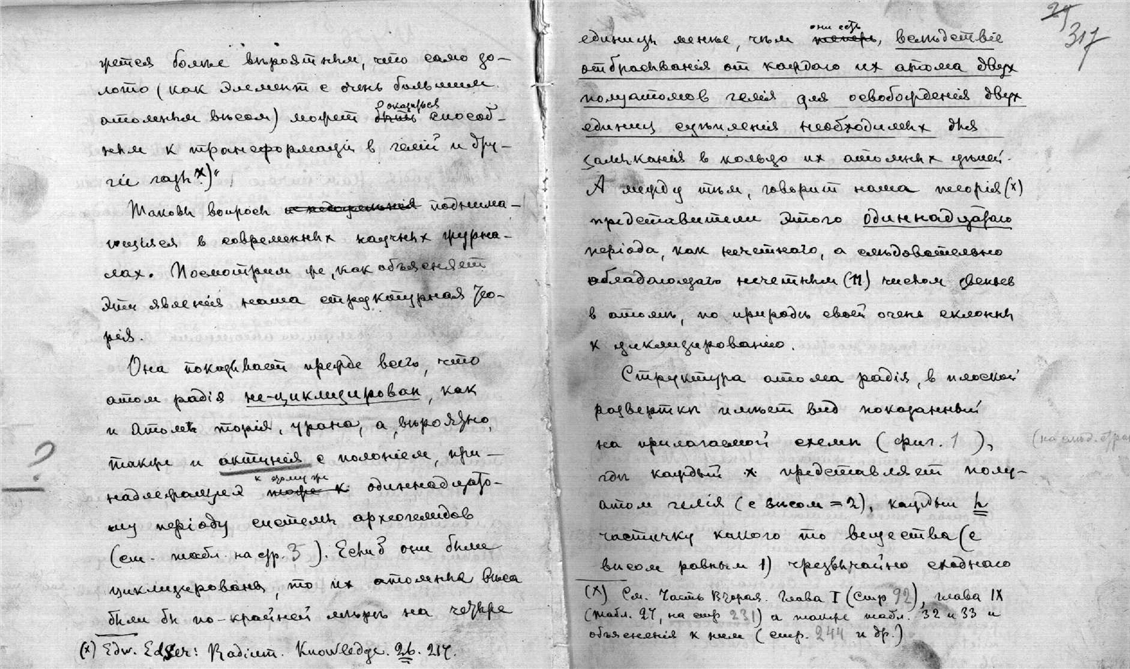 жется болѣе вѣроятнымъ, что само зо-
лото (какъ элементъ с очень большимъ
атомнымъ вѣсом) может быть оказаться способ-
нымъ к трансформаціи в гелій и дру-
гіе газы x)
Таковы вопросы поднима-
ющіеся в современныхъ научныхъ журна-
лах. Посмотрим же, как объясняет
эти явленія наша структурная тео-
рія.
Она показываетъ прежде всего, что
атом радія не-циклизирован, как
и атомы торія, урана, а, вѣроятно,
также и актинія с полоніем, при-
надлежащія к тому же одиннадцато-
му періоду системы археогелидов
(см. табл. на стр. 5). Если б они были
циклизированы, то их атомные вѣса
были бы по-крайней мѣрѣ на четыре
(x) Edw. Edser: Radium. Knowledge. 26. 217.
?
29
317
единицы менѣе, чѣм они есть, вслѣдствіе
отбрасыванія от каждаго их атома двух
полуатомов гелія для освобожденія двух
единиц сцѣпленія необходимых для
замыканія в кольцо их атомных цѣпей.
А между тѣм, говорит наша теорія (x)
представители этого одиннадцатаго
періода, как нечетнаго, а слѣдовательно
обладающаго нечетным (11) числом звеньев
в атомѣ, по природѣ своей очень склонны
к циклизированію.
Структура атома радія, в плоской
разверткѣ имѣет вид показанный
на прилагаемой схемѣ (фиг. 1),
гдѣ каждый x представляет полу-
атом гелія (с вѣсом = 2), каждый h
частичку какого то вещества (с
вѣсом равным 1) чрезвычайно сходнаго
(x) См. Часть Вторая. Глава I (стр 92), глава IX
(табл. 27, на стр 231) а также табл. 32 и 33 и
объясненія к ним (стр. 244 и др.)